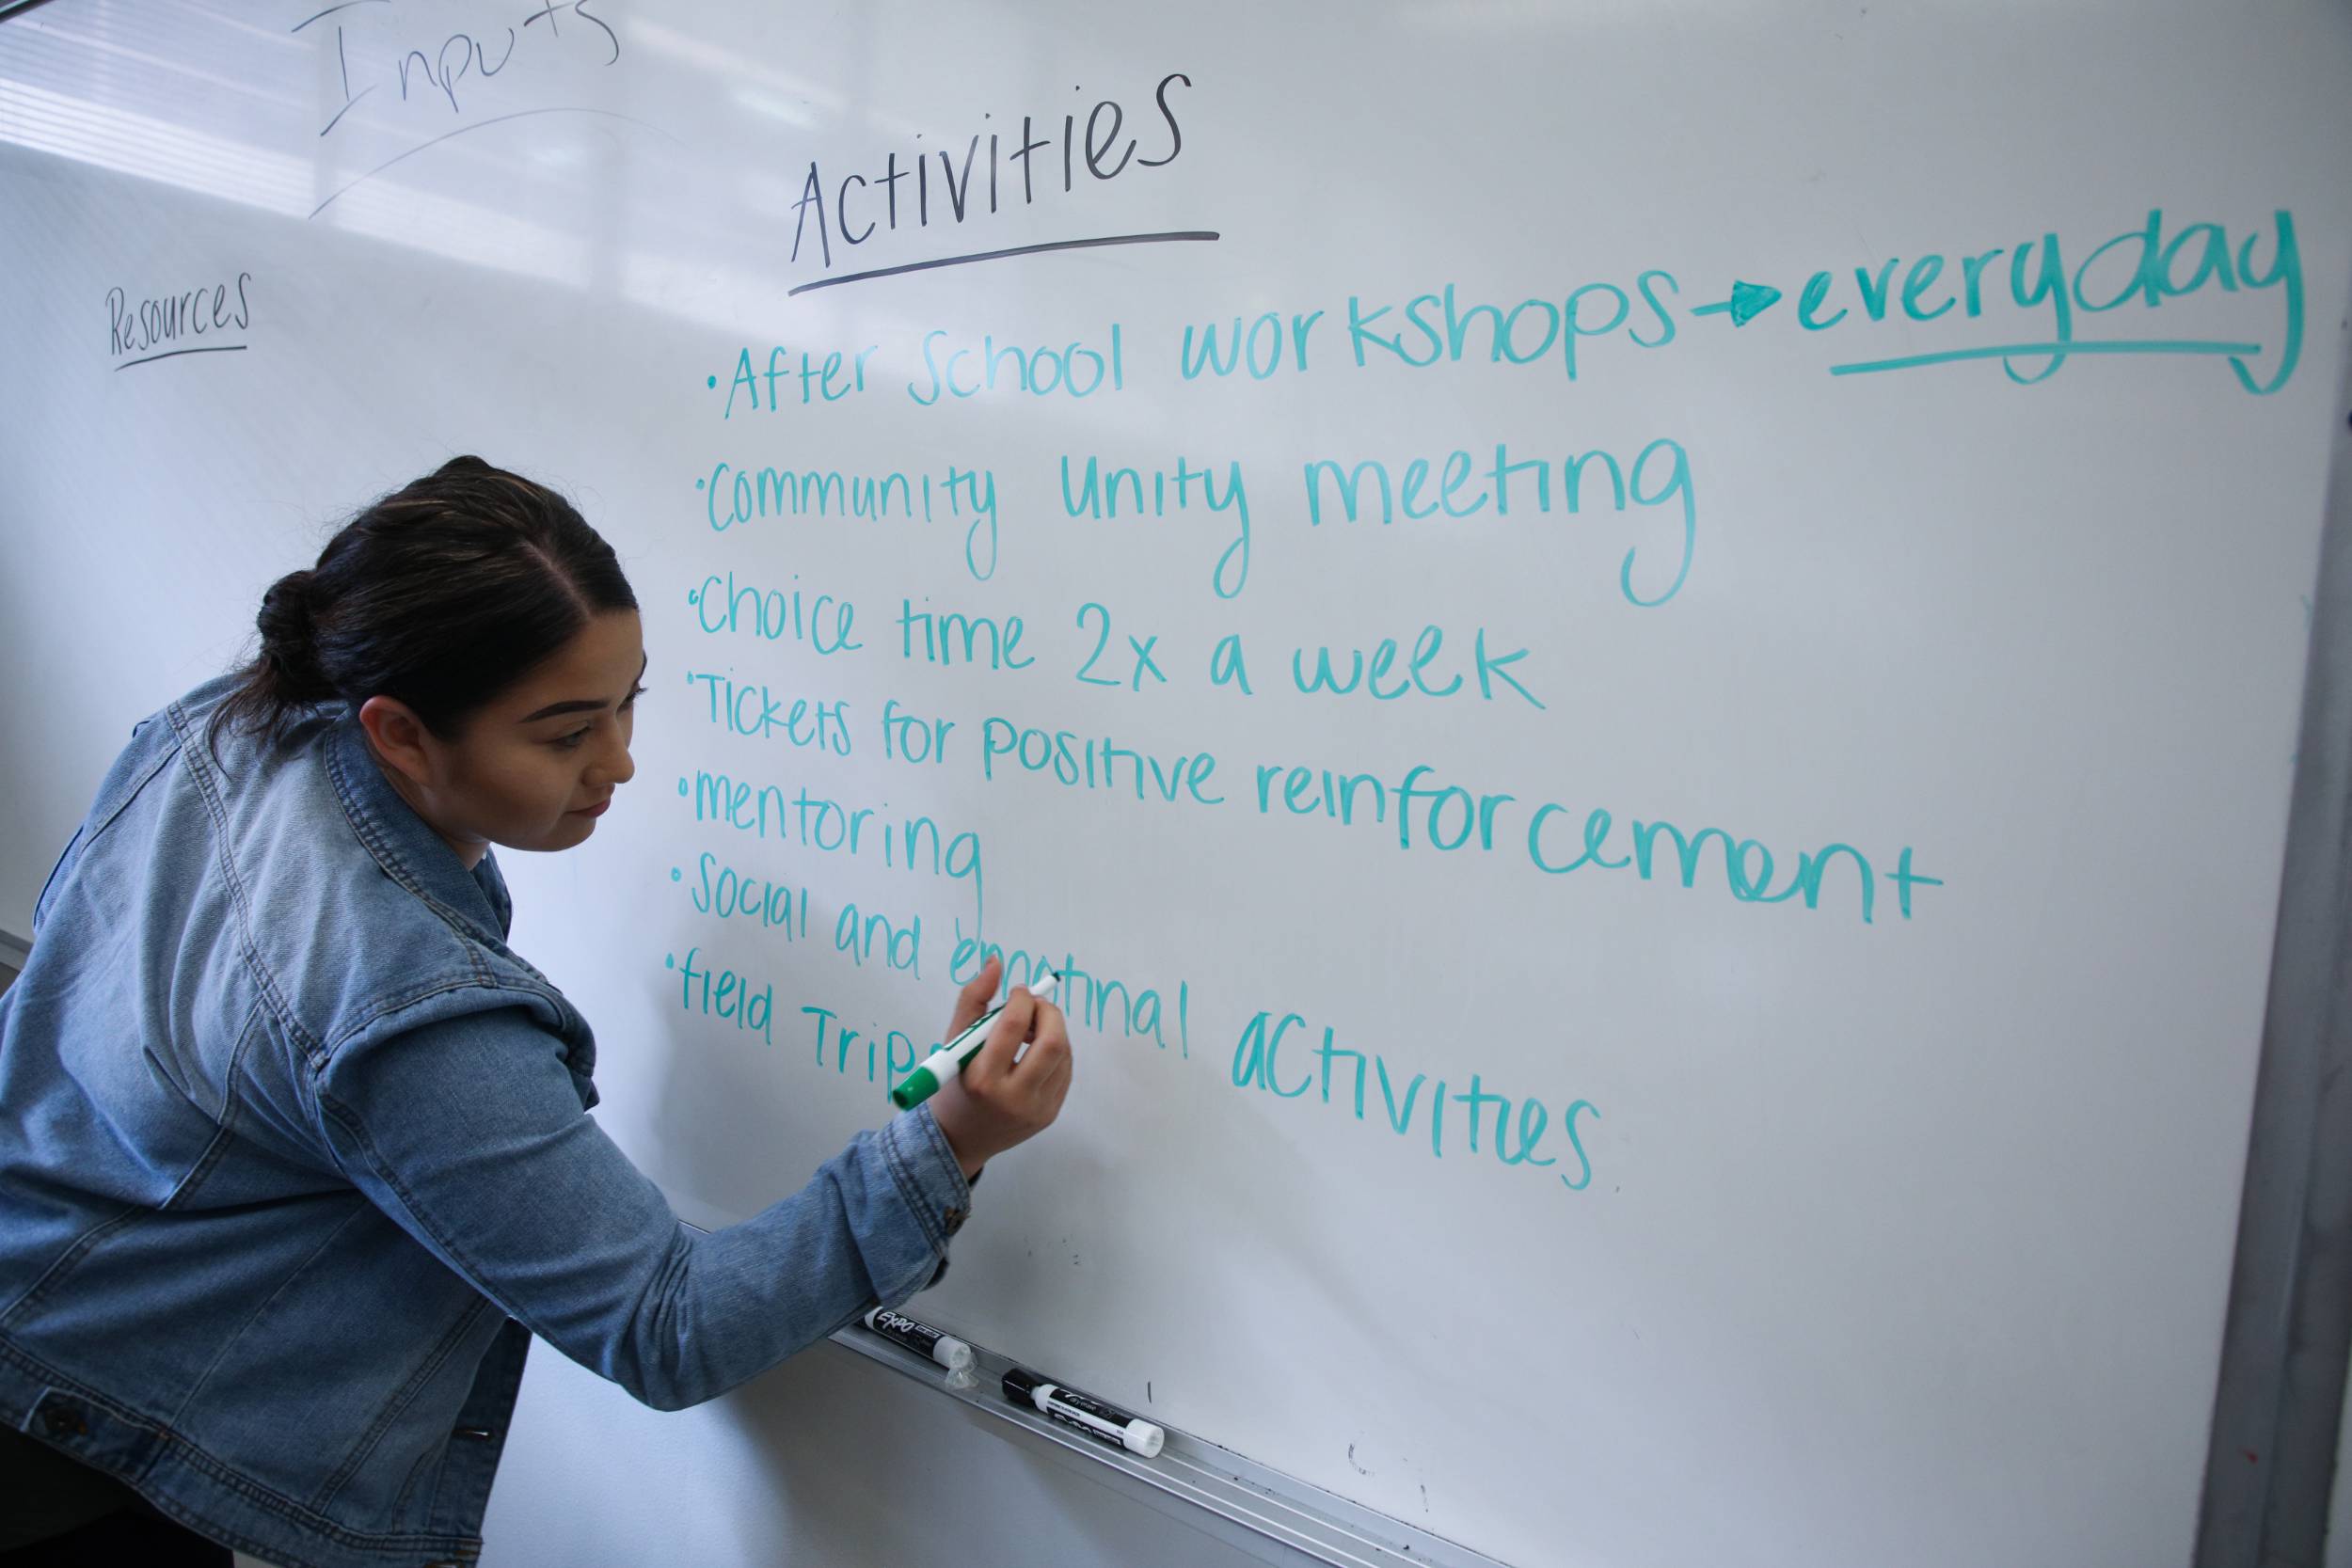 Inputs
Activities
Resources
• After School workshops → everyday
• Community Unity meeting
• Choice time 2x a week
• Tickets for positive reinforcement
• mentoring
• Social and emotinal activities
• field Trips
EXPO
EXPO